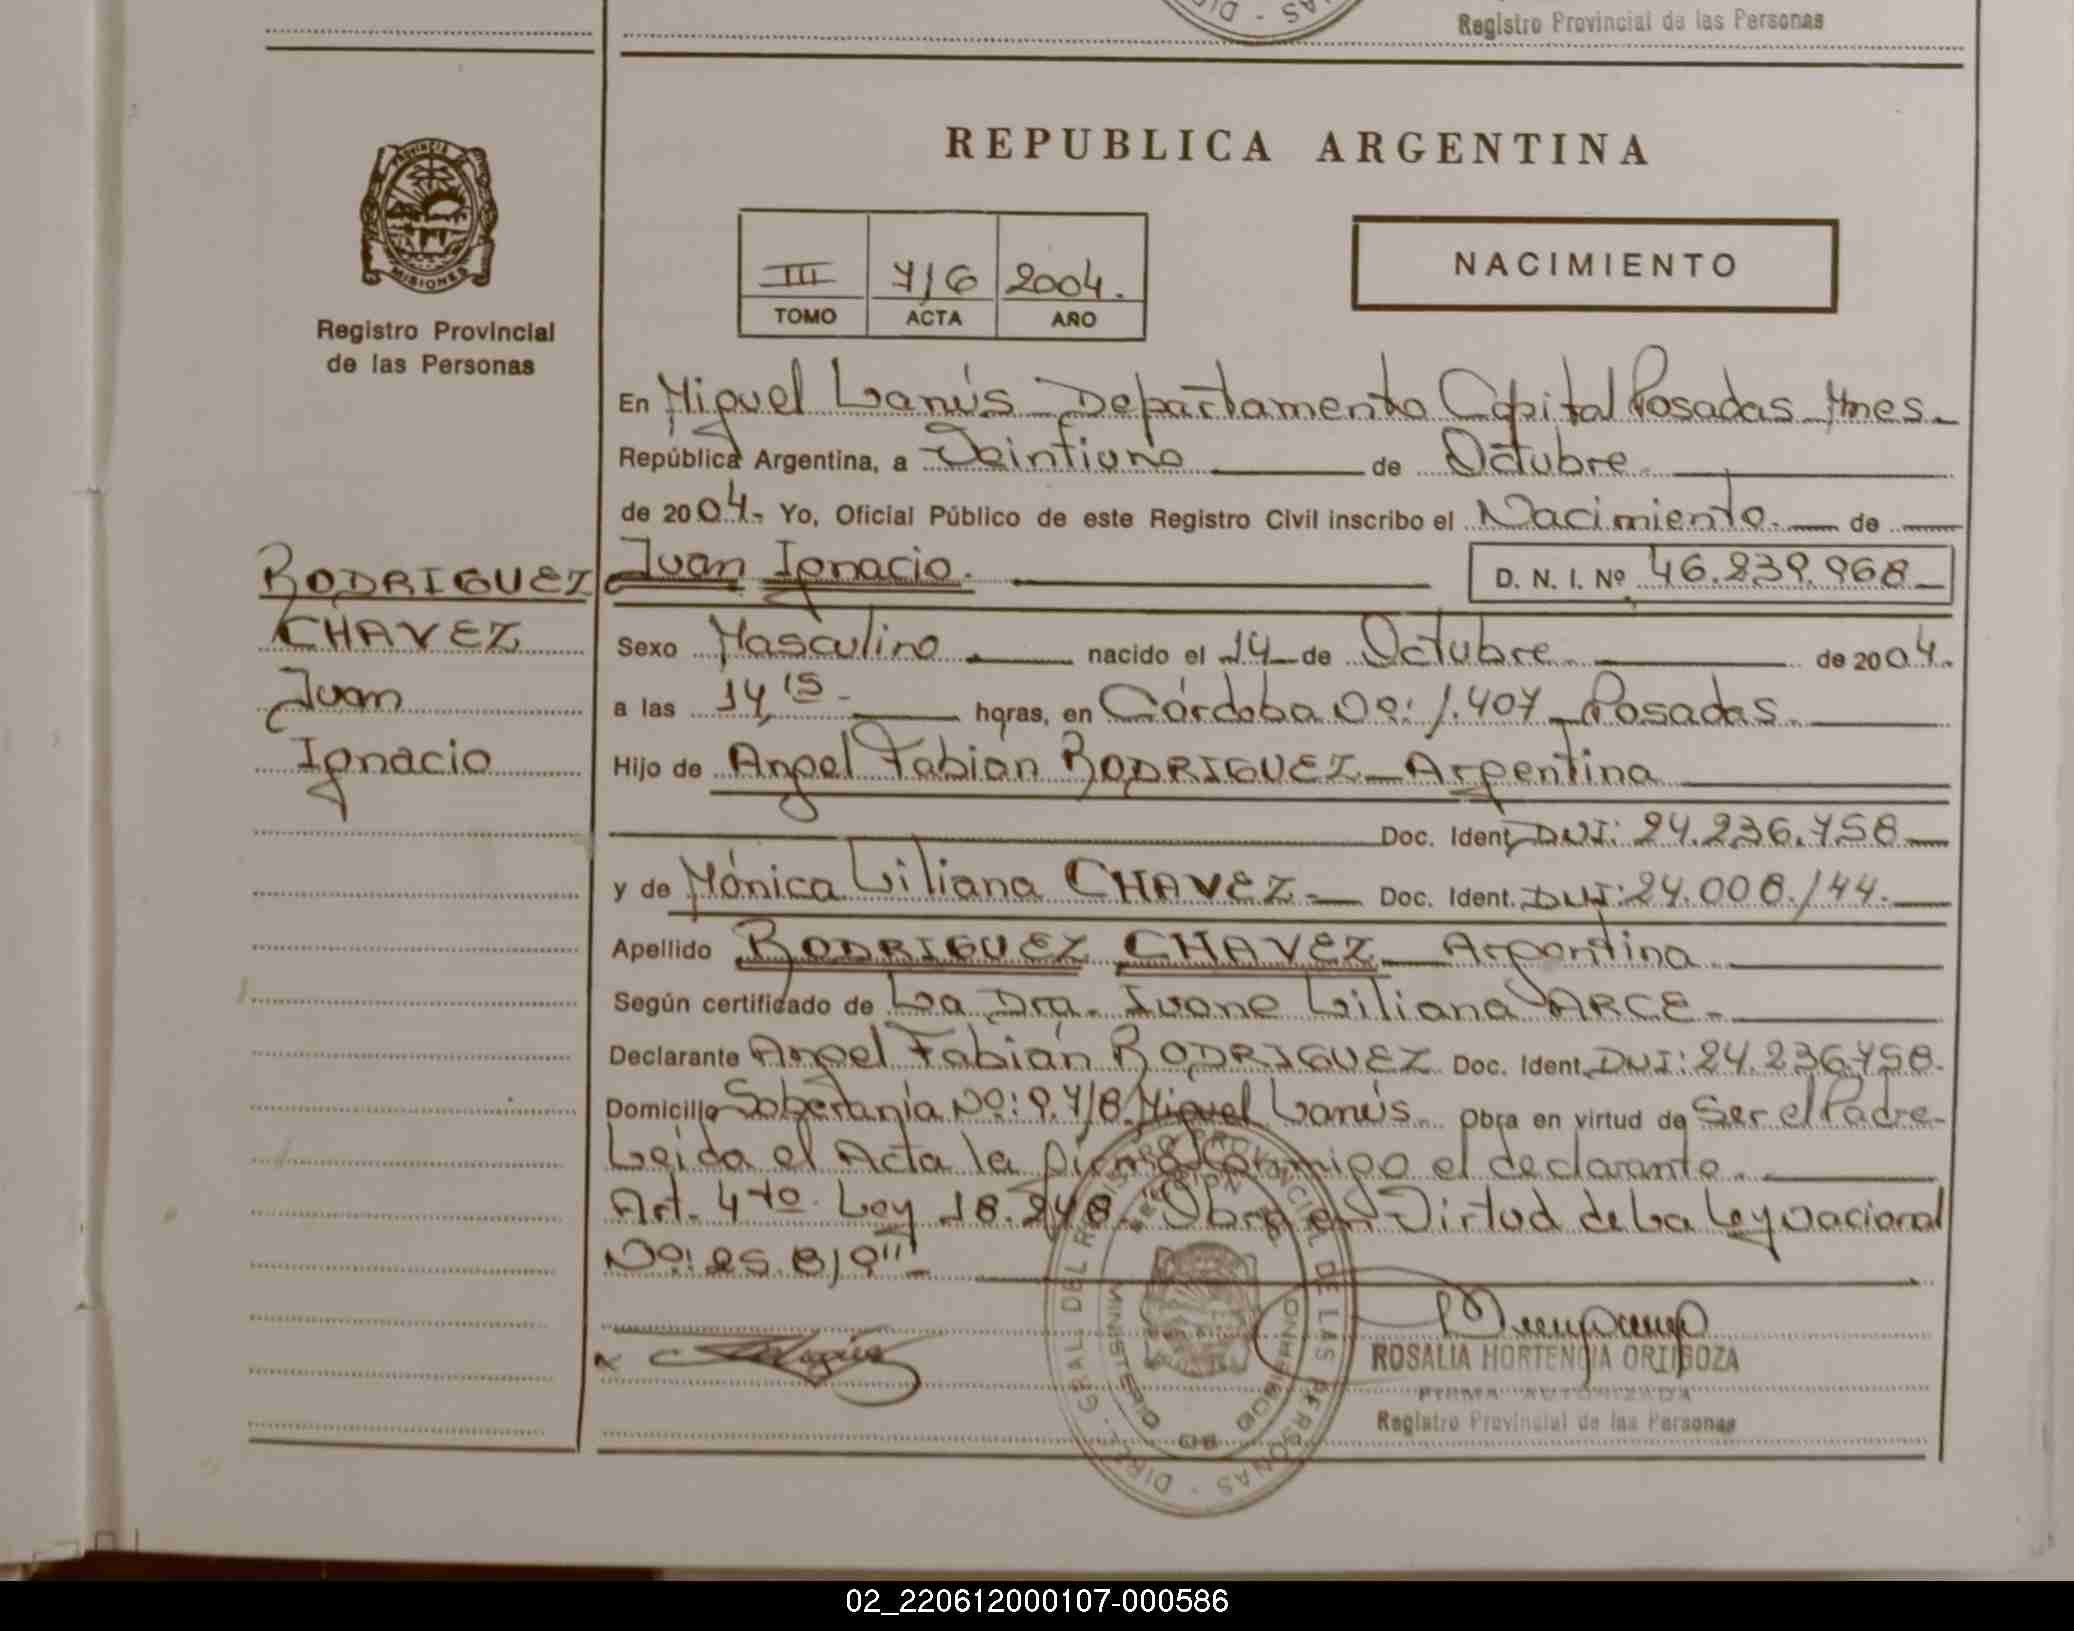 Registro Provincial de las Personas
REPUBLICA ARGENTINA
PROVINCIA DE
MISIONES
Registro Provincial
de las Personas
III 716 2004.
TOMO ACTA AÑO
NACIMIENTO
En Miguel Lanús Departamento Capital Posadas Mnes.
República Argentina, a Veintiuno de Octubre
de 2004. Yo, Oficial Público de este Registro Civil inscribo el Nacimiento de
RODRIGUEZ
CHAVEZ
Juan
Ignacio
Juan Ignacio. D. N. I. Nº 46.239.968
Sexo Masculino nacido el 14 de Octubre de 2004.
a las 14,15 horas, en Córdoba Nº: 1.407 Posadas.
Hijo de Angel Fabian RODRIGUEZ Argentina
Doc. Ident. DNI: 24.236.758
y de Mónica Liliana CHAVEZ Doc. Ident. DNI: 24.008.144.
Apellido RODRIGUEZ CHAVEZ Argentina
Según certificado de La Dra. Ivone Liliana ARCE
Declarante Angel Fabián RODRIGUEZ Doc. Ident. DNI: 24.236.758.
Domicilio Soberanía Nº: 9.718 Miguel Lanús. Obra en virtud de Ser el Padre
Leida el Acta la firma conmigo el declarante.
Art. 4to. Ley 18.248. Obra en Virtud de La Ley Nacional
Nº: 25.819"
DIREC. GRAL. DEL REGISTRO PROVINCIAL DE LAS PERSONAS
MINISTERIO DE GOBIERNO
ROSALIA HORTENCIA ORTIGOZA
FIRMA AUTORIZADA
Registro Provincial de las Personas
02_220612000107-000586